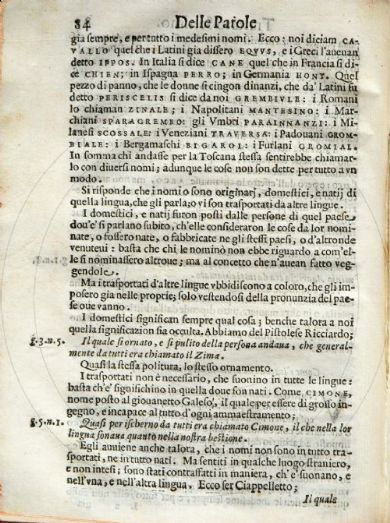 84 Delle Parole
già sempre, e per tutto i medesimi nomi. Ecco: noi diciam CA-
VALLO quel che i Latini già dissero EQVVS, e i Greci l'aueuan
detto IPPOS. In Italia si dice CANE quel che in Francia si di-
ce CHIEN; in Ispagna PERRO; in Germania HONT. Quel
pezzo di panno, che le donne si cingon dinanzi, che da' Latini fu
detto PERISCELIS si dice da noi GREMBIVLE: i Romani
lo chiaman ZINALE; i Napolitani MANTESINO: i Mar-
chiani SPARAGREMBO: gli Vmbri PARAINNANZI: i Mi-
lanesi SCOSSALE: i Veneziani TRAVERSA: i Padouani GROM-
BIALE: i Bergamaschi BIGAROL: i Furlani GROMIAL.
In somma chi andasse per la Toscana stessa sentirebbe chiamar-
lo con diuersi nomi; adunque le cose non son dette per tutto a vn
modo.
Si risponde che i nomi o sono originarj, domestici, e natij di
quella lingua, che gli parla; o vi son trasportati da altre lingue.
I domestici, e natij furon posti dalle persone di quel paese
dou'e' si parlano subito, ch'elle consideraron le cose da lor nomi-
nate, o fossero nate, o fabbricate ne gli stessi paesi, o d'altronde
venuteui: basta che chi le nominò non ebbe riguardo a com'el-
le si nominassero altroue; ma al concetto che n'auean fatto veg-
gendole.
Ma i trasportati d'altre lingue vbbidiscono a coloro, che gl'im-
posero già nelle proprie; solo vestendosi della pronunzia del pae-
se oue vanno.
I domestici significan sempre qual cosa; benche talora a noi
quella significazion sia occulta. Abbiamo del Pistolese Ricciardo;
g.3.n.5. Il quale sì ornato, e sì pulito della persona andaua, che general-
mente da tutti era chiamato il Zima.
Quasi la stessa politura, lo stesso ornamento.
I trasportati non è necessario, che suonino in tutte le lingue:
basta ch'e' significhino in quella doue son nati. Come CIMONE,
nome posto al giouanetto Galeso, il quale per essere di grosso in-
gegno, e incapace al tutto d'ogni ammaestramento;
g.5.n.1. Quasi per ischerno da tutti era chiamato Cimone, il che nella lor
lingua sonaua quanto nella nostra bestione.
Egli auuiene anche talora, che i nomi non sono in tutto tra-
sportati, ne in tutto nati. Ma sentiti in qualche luogo straniero,
e non intesi; sono stati contraffatti in maniera, ch'e' suonano, e
nell'vna, e nell'altra lingua. Ecco ser Ciappelletto;
Il quale